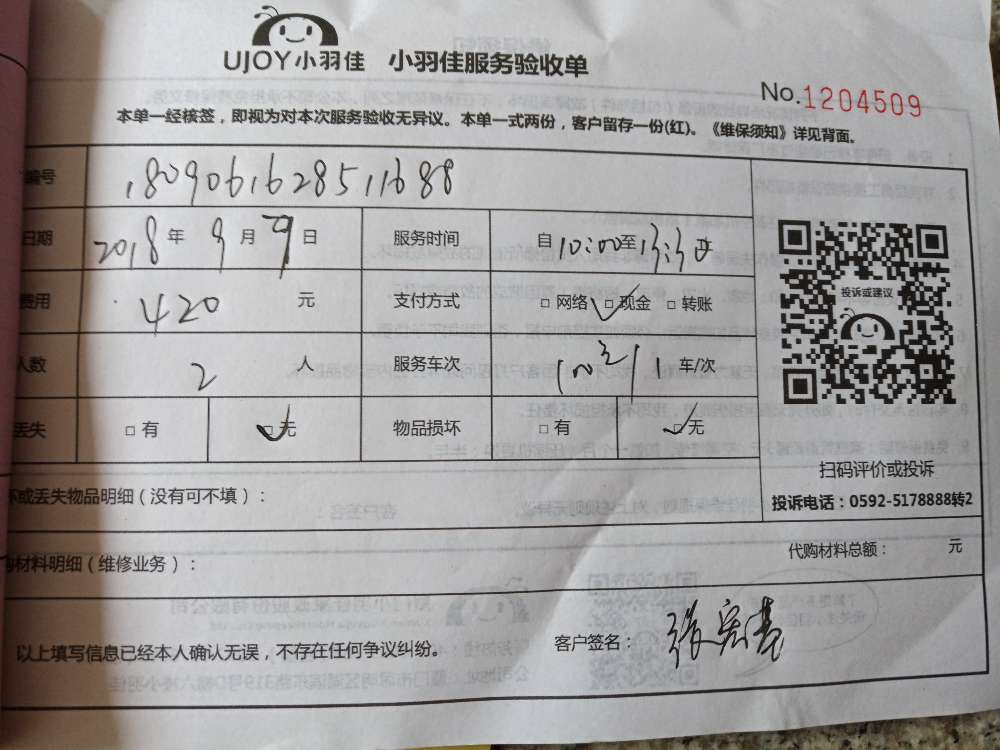 UJOY小羽佳 小羽佳服务验收单
No.1204509
本单一经核签，即视为对本次服务验收无异议。本单一式两份，客户留存一份(红)。《维保须知》详见背面。
编号 180906162851 1688
日期 2018年9月9日 服务时间 自10:00至13:30
费用 420元 支付方式 □网络 ☑现金 □转账
人数 2人 服务车次 车/次
丢失 □有 ☑无 物品损坏 □有 ☑无
投诉或建议
扫码评价或投诉
投诉电话：0592-5178888转2
坏或丢失物品明细（没有可不填）：
购材料明细（维修业务）： 代购材料总额： 元
以上填写信息已经本人确认无误，不存在任何争议纠纷。 客户签名：